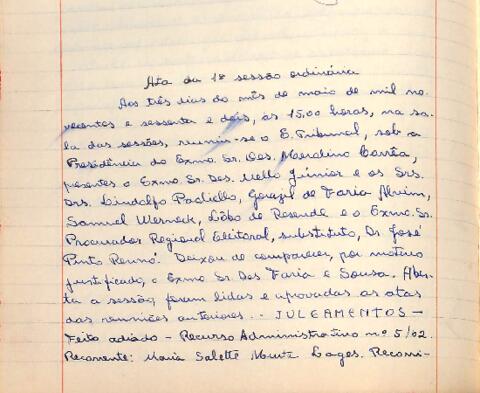 Ata da 18ª sessão ordinária
Aos três dias do mês de maio de mil no-
vecentos e sessenta e dois, às 15,00 horas, na sa-
la das sessões, reuniu-se o E. Tribunal, sob a
Presidência do Exmo. Sr. Des. Corrêa,
presentes o Exmo. Sr. Des. Mello Júnior e os Srs.
Drs. Lindolfo Padiello, de Faria Alvim,
Samuel Werneck, Lôbo de Resende e o Exmo. Sr.
Procurador Regional Eleitoral, substituto, Dr. José
Pinto Rennó. Deixou de comparecer, por motivo
justificado, o Exmo. Sr. Des. Faria e Sousa. Aber-
ta a sessão, foram lidas e aprovadas as atas
das reuniões anteriores. - JULGAMENTOS -
Feito adiado - Recurso Administrativo nº 5/62.
Recorrente: Maria Salette Lages. Recorri-